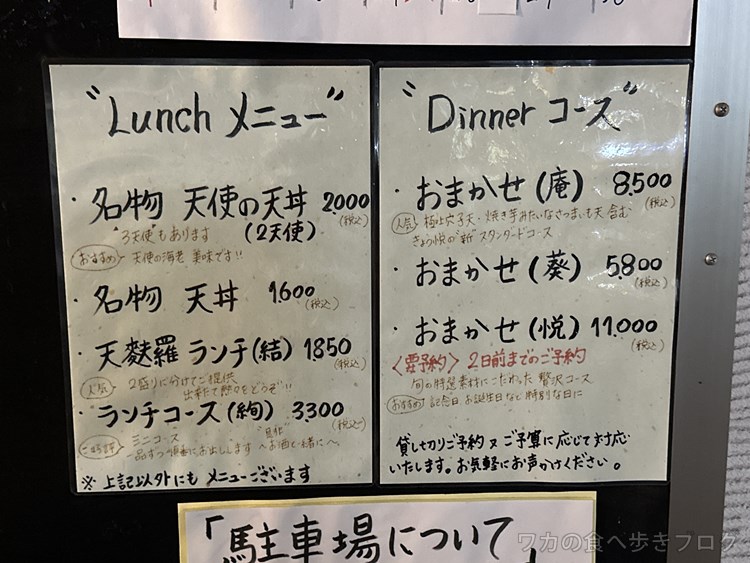 "Lunch メニュー"
・名物 天使の天丼 2,000
(税込)
3天使もあります (2天使)
おすすめ 天使の海老 美味です!!
・名物 天丼 1,600
(税込)
・天麩羅 ランチ(結) 1850
(税込)
人気 2盛りに分けてご提供
出来たて熱々をどうぞ!!
・ランチコース(絢) 3,300
(税込)
ご好評 ミニコース
一品ずつ順番にお出しします ~お酒と一緒に~。
※ 上記以外にもメニューございます
"Dinner コース"
・おまかせ(庵) 8,500
(税込)
人気 極上穴子天・焼き芋みたいなさつまいも天 含む
きょう悦の"新"スタンダードコース
・おまかせ(葵) 5,800
(税込)
・おまかせ(悦) 11,000
(税込)
〈要予約〉 2日前までのご予約
旬の特選素材にこだわった 贅沢コース
おすすめ 記念日 お誕生日など特別な日に
貸し切りご予約 又 ご予算に応じて対応
いたします。お気軽にお声かけください。
「駐車場について
ワカの食べ歩きブログ